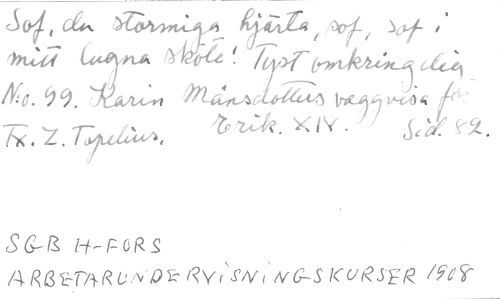 Sof, du stormiga hjärta, sof, sof i
mitt lugna sköte! Tyst omkring dig
N:o. 99. Karin Månsdotters vaggvisa för
Tx. Z. Topelius. Erik. XIV. Sid. 82.
SGB H-FORS
ARBETARUNDERVISNINGSKURSER 1908